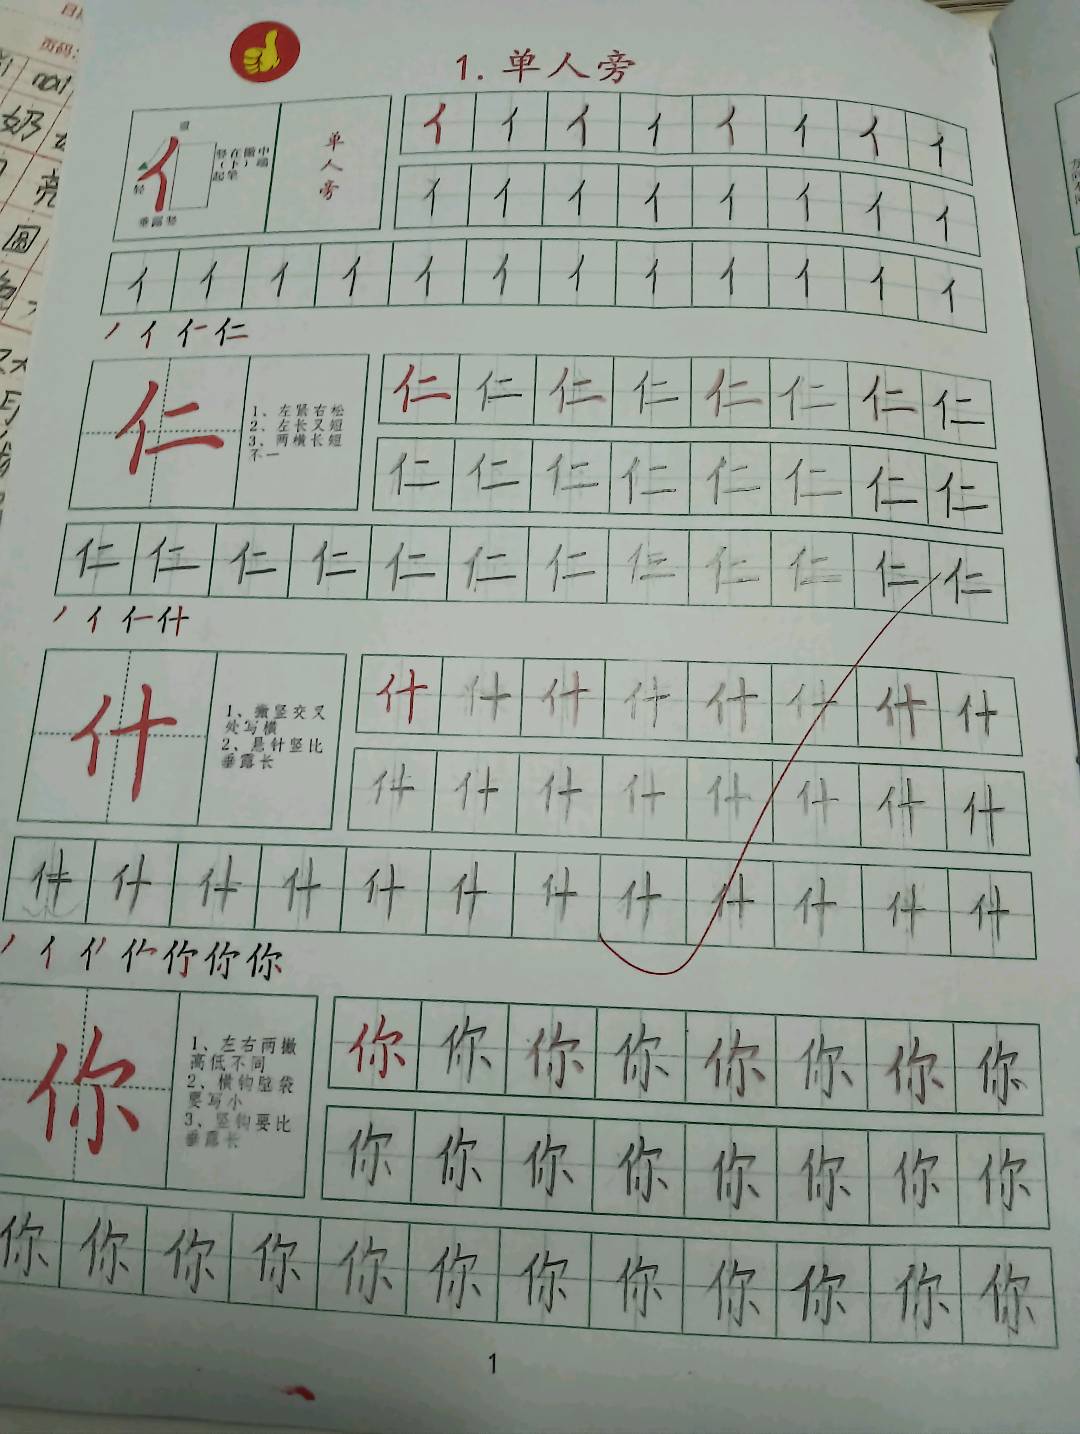 页码:
奶
亮
圆
1. 单人旁
单人旁
轻
垂露竖
亻 亻 亻 亻 亻 亻 亻 亻
亻 亻 亻 亻 亻 亻 亻 亻
亻 亻 亻 亻 亻 亻 亻 亻 亻 亻 亻 亻
丿 亻 仁
仁
1、左紧右松
2、左长又短
3、两横长短
不一
仁 仁 仁 仁 仁 仁 仁 仁
仁 仁 仁 仁 仁 仁 仁 仁
仁 仁 仁 仁 仁 仁 仁 仁 仁 仁 仁 仁
丿 亻 什
什
1、撇竖交叉
处写横
2、悬针竖比
垂露长
什 什 什 什 什 什 什 什
什 什 什 什 什 什 什 什
什 什 什 什 什 什 什 什 什 什 什 什
丿 亻 你
你
1、左右两撇
高低不同
2、横钩竖袋
要写小
3、竖钩要比
垂露长
你 你 你 你 你 你 你 你
你 你 你 你 你 你 你 你
你 你 你 你 你 你 你 你 你 你 你 你
1